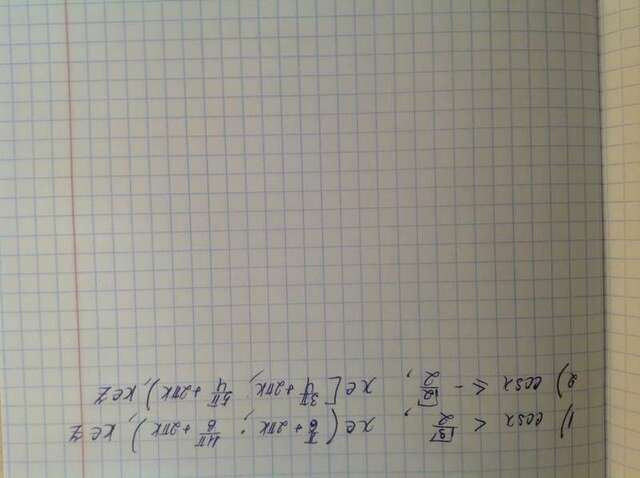 1) cosx < √3/2, x∈(π/6+2πk; 11π/6+2πk), k∈Z
2) cosx ≤ -√2/2, x∈[3π/4+2πk; 5π/4+2πk), k∈Z